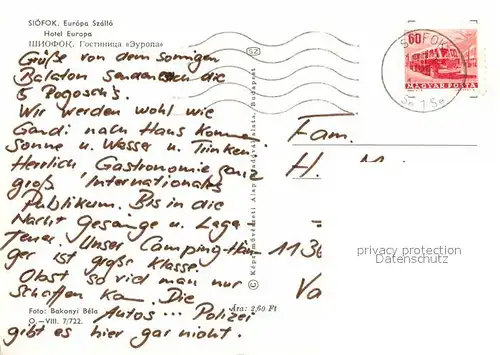 SIÓFOK. Európa Szálló
Hotel Europa
ШИОФОК. Гостиница «Эуропа»
Grüße von dem sonnigen
Balaton senden euch die
5 Pogosch's.
Wir werden wohl wie
Gandi nach Haus kommen
Sonne u. Wasser u. Trinken.
Herrlich Gastronomie ganz
groß Internationales
Publikum. Bis in die
Nacht Gesänge u. Lage-
feuer. Unser Camping-Hän-
ger ist große Klasse.
Obst so viel man nur
Schaffen kan. Die
Autos ... Polizei
gibt es hier gar nicht.
Foto: Bakonyi Béla
O.—VIII. 7/722.
Ára: 2,60 Ft
© Képzőművészeti Alap Kiadóvállalata, Budapest
SZ
60
MAGYAR POSTA
SIÓFOK
Fam.
H. M
113
Va
privacy protection
Datenschutz